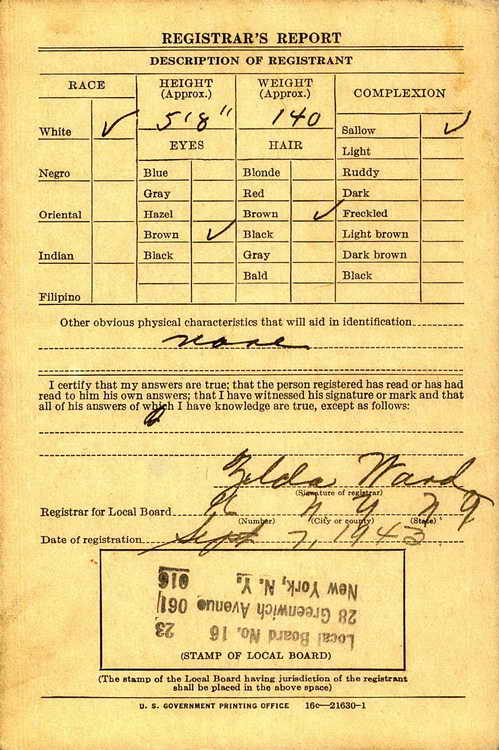 REGISTRAR'S REPORT
DESCRIPTION OF REGISTRANT
RACE
HEIGHT
(Approx.)
WEIGHT
(Approx.)
COMPLEXION
5'8"
140
White ✓
Sallow ✓
EYES
HAIR
Light
Negro
Blue
Blonde
Ruddy
Gray
Red
Dark
Oriental
Hazel
Brown ✓
Freckled
Brown ✓
Black
Light brown
Indian
Black
Gray
Dark brown
Bald
Black
Filipino
Other obvious physical characteristics that will aid in identification
none
I certify that my answers are true; that the person registered has read or has had
read to him his own answers; that I have witnessed his signature or mark and that
all of his answers of which I have knowledge are true, except as follows:
Zelda Ward
(Signature of registrar)
Registrar for Local Board 16 N Y N Y
(Number) (City or county) (State)
Date of registration Sept 7, 1943
Local Board No. 16 23
28 Greenwich Avenue 061
New York, N. Y. 016
(STAMP OF LOCAL BOARD)
(The stamp of the Local Board having jurisdiction of the registrant
shall be placed in the above space)
U. S. GOVERNMENT PRINTING OFFICE 16c—21630-1